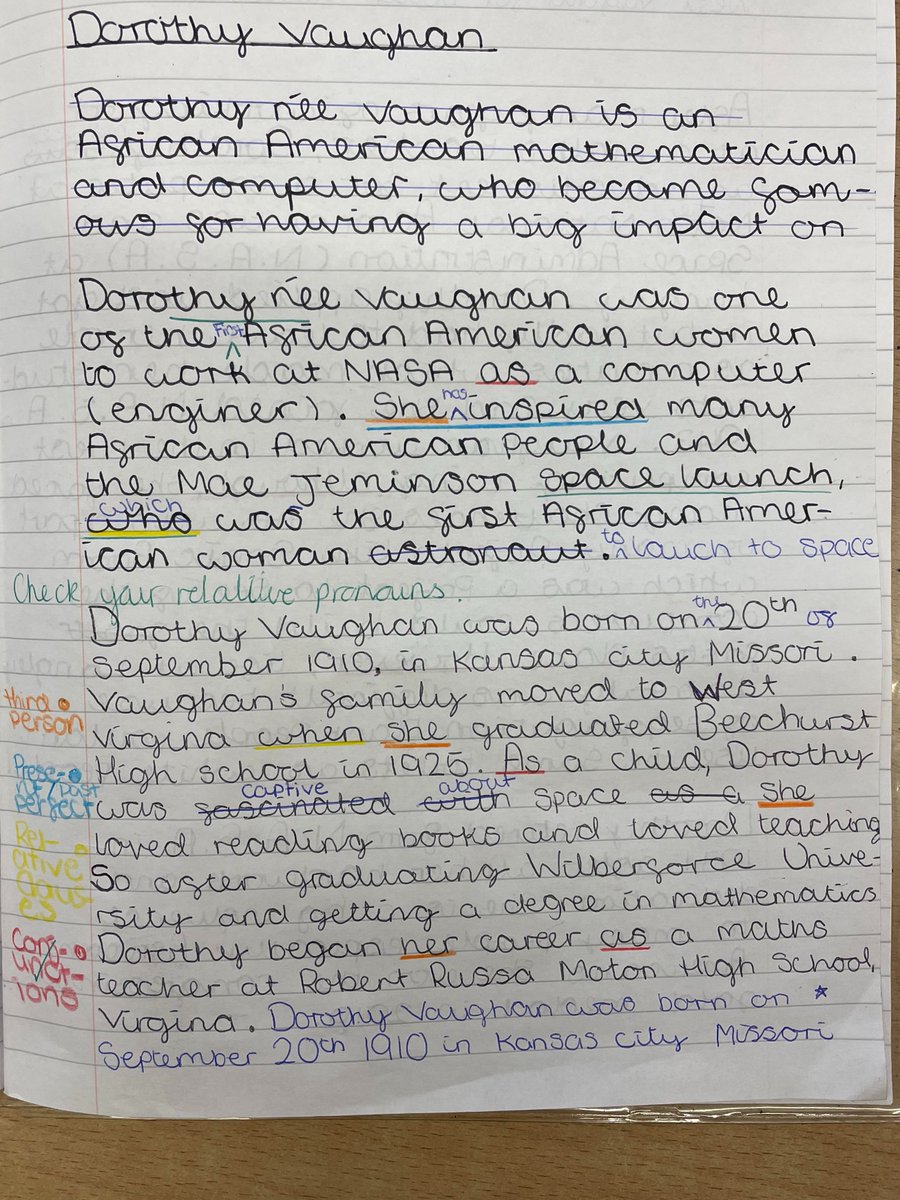 Dorothy Vaughan
Dorothy née Vaughan is an
African American mathematician
and computer, who became fam-
ous for having a big impact on
Dorothy née Vaughan was one
of the First African American women
to work at NASA as a computer
(enginer). She has inspired many
African American people and
the Mae Jeminson space launch,
who which was the first African Amer-
ican woman astronaut. to lauch to space
Check your relative pronouns.
Dorothy Vaughan was born on the 20th of
September 1910, in Kansas city Missori.
Vaughan's family moved to West
Virgina when she graduated Beechurst
High school in 1925. As a child, Dorothy
was fascinated captive with about space as a she
loved reading books and loved teaching
So after graduating Wilberforce Unive-
rsity and getting a degree in mathematics
Dorothy began her career as a maths
teacher at Robert Russa Moton High School,
Virgina. Dorothy Vaughan was born on *
September 20th 1910 in Kansas city Missori
third person
Prese-
nt/past
perfect
Rel-
ative
claus-
es
Conj-
unct-
ions